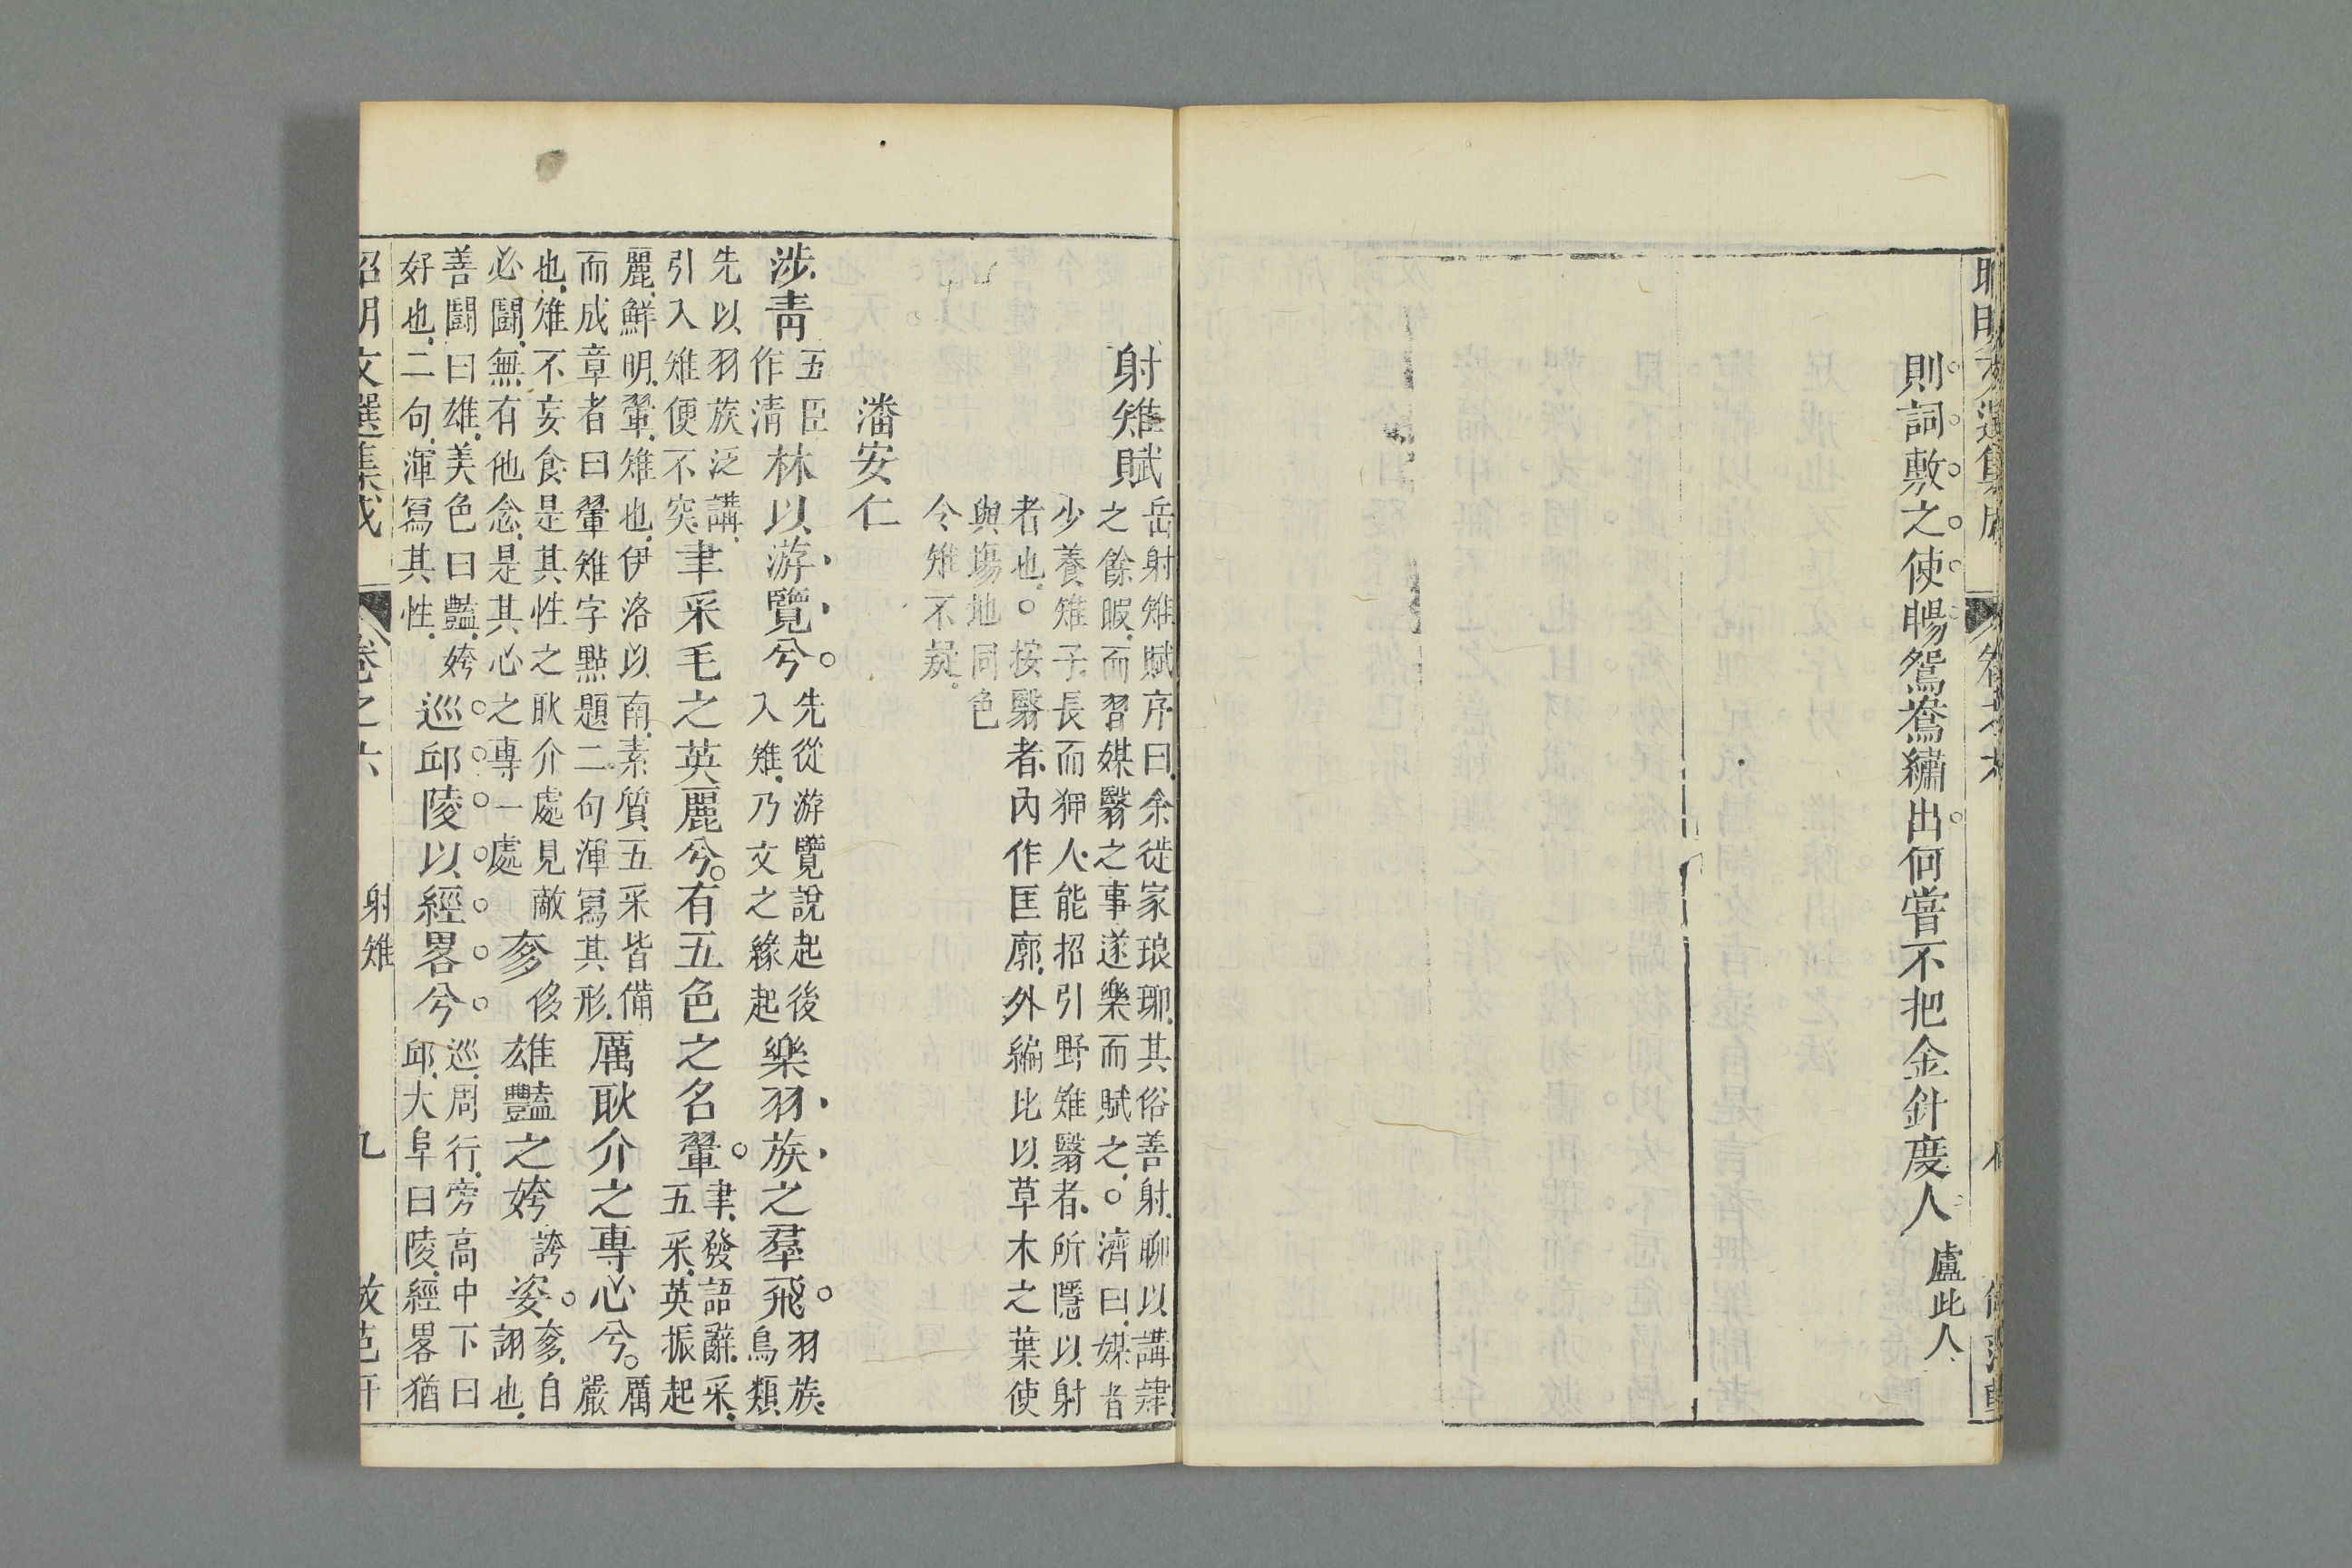 則詞敷之使暢鴛鴦繡出何嘗不把金針度人盧此人
射雉賦
岳射雉賦序曰余徙家琅琊其俗善射聊以講肄
之餘暇而習媒翳之事遂樂而賦之○濟曰媒者
少養雉子長而狎人能招引野雉翳者所隱以射
者也○按翳者內作匡廓外編比以草木之葉使
與塲地同色
令雉不疑
潘安仁
涉青五臣作清林以游覽兮先從游覽說起後入雉乃文之緣起樂羽族之羣飛羽族鳥類
先以羽族泛講引入雉便不突聿采毛之英麗兮有五色之名翬聿發語辭采五采英振起
麗鮮明翬雉也伊洛以南素質五采皆備而成章者曰翬雉字點題二句渾寫其形厲耿介之專心兮厲嚴
也雉不妄食是其性之耿介處見敵必鬭無有他念是其心之專一處奓侈雄豔之姱誇姿奓自詡也
善鬭曰雄美色曰豔姱好也二句渾寫其性巡邱陵以經畧兮巡周行旁高中下曰邱大阜曰陵經畧猶
昭明文選集成 卷之六 射雉 九